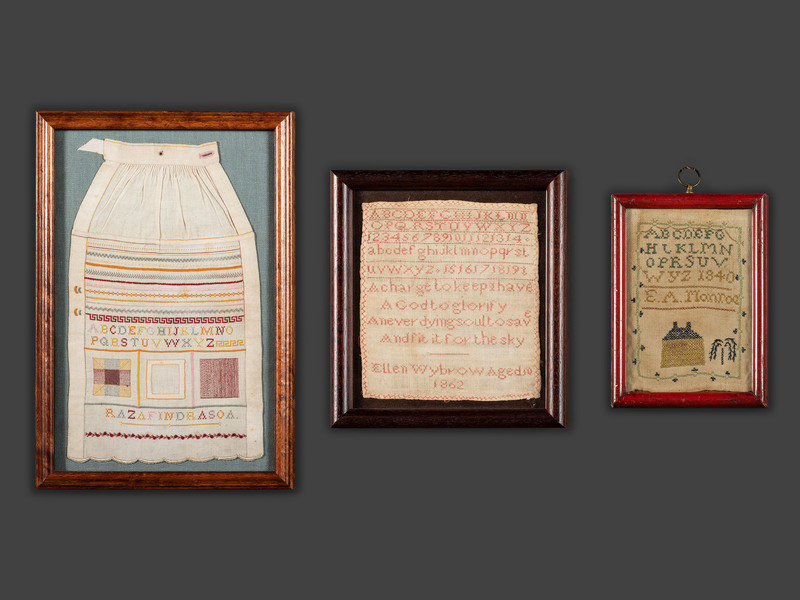 ABCDEFGHIJKLMNO
PQRSTUVWXYZ
RAZAFINDRASOA.
ABCDEFGHIJKLMN
OPQRSTUVWXYZ
1234567891011121314
abcdefghijklmnopqrst
uvwxyz 1516171819
A charge to keep I have
A God to glorify
A never dying soul to save
And fit it for the sky
Ellen Wybrow Aged 10
1862
ABCDEFG
HIKLMN
OPRSUV
Wyz 1840
E.A. Monroe